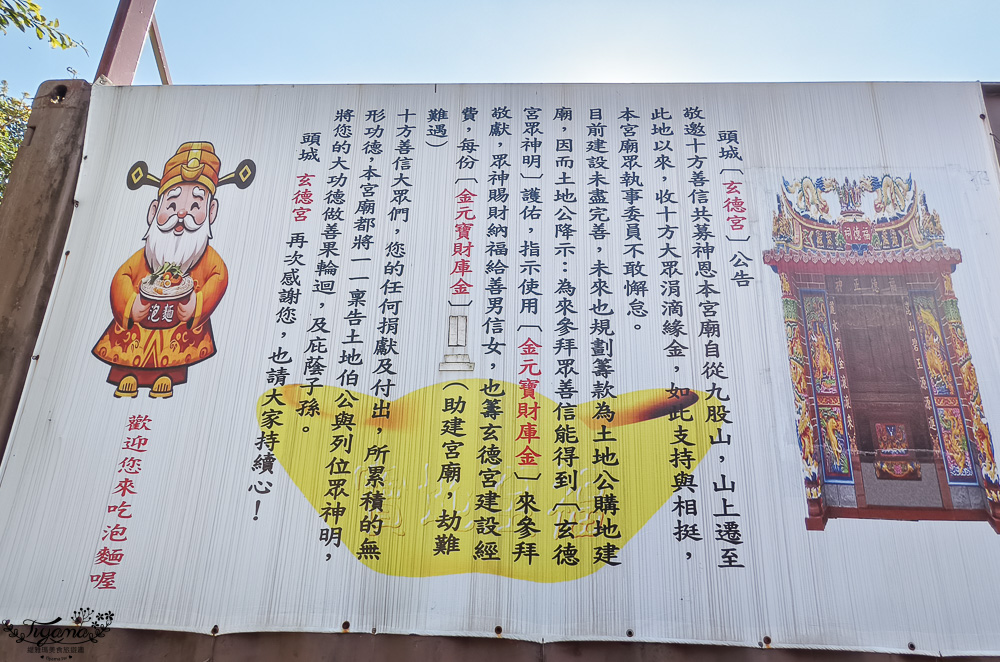 頭城〔玄德宮〕公告
敬邀十方善信共募神恩本宮廟自從九股山，山上遷至
此地以來，收十方大眾涓滴緣金，如此支持與相挺，
本宮廟眾執事委員不敢懈怠。
目前建設未盡完善，未來也規劃籌款為土地公購地建
廟，因而土地公降示：為來參拜眾善信能得到〔玄德
宮眾神明〕護佑，指示使用〔金元寶財庫金〕來參拜
敬獻，眾神賜財納福給善男信女，也籌玄德宮建設經
費，每份〔金元寶財庫金〕（助建宮廟，劫難
難遇）
十方善信大眾們，您的任何捐獻及付出，所累積的無
形功德，本宮廟都將一一稟告土地伯公與列位眾神明，
將您的大功德做善果輪迴，及庇蔭子孫。
頭城 玄德宮 再次感謝您，也請大家持續心！
歡迎您來吃泡麵喔
泡麵
福德祠
Tiyama